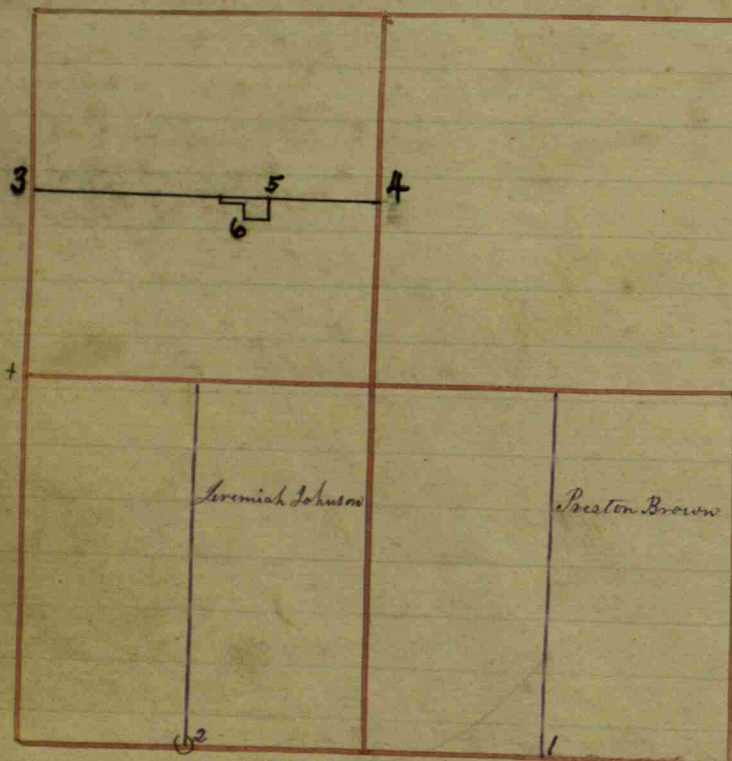 3
5
4
6
Jeremiah Johnson
Preston Brown
2
1